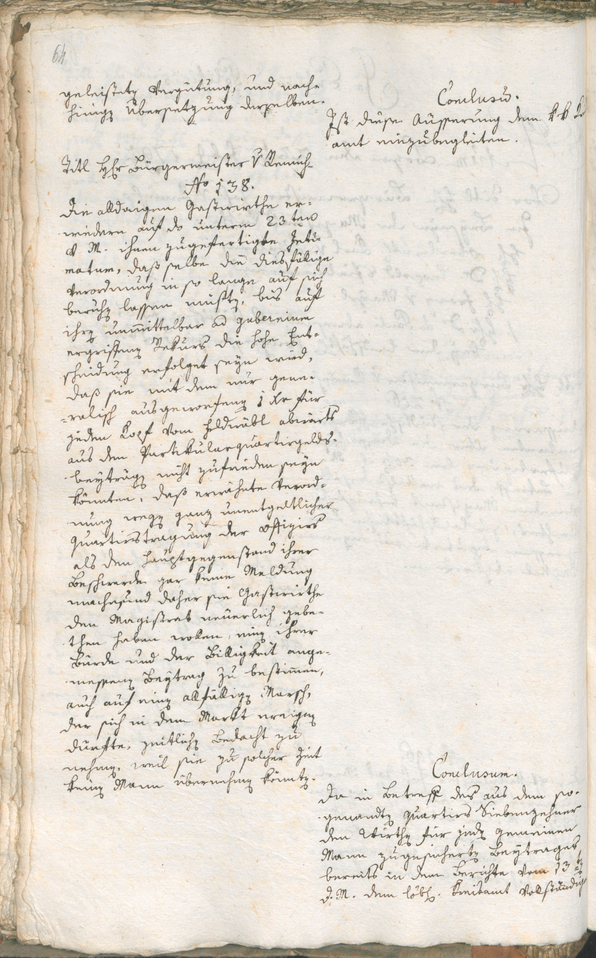 64
geleistete Vergütung, und nach-
hinige Übersetzung derselben.
Conclusum.
Ist diese Äusserung dem k. k.
amt einzubegleiten.
Titl Hr Bürgermeister v
No 138.
Die alldaigen Gastwirthe er-
wiedern auf das unterm 23ten
d. M. ihnen zugefertigte Inti-
matum, daß selbe die diesfällige
Verordnung in so lange auf sich
beruhen lassen müßten, bis auf
ihren unmittelbar ad Gubernium
ergriffenen Rekurs die hohe Ent-
scheidung erfolget seyn wird,
daß sie mit dem nur gene-
ralisch ausgeworfenen 1 Xr für
jeden Kopf vom Feldwäbl abwerts
aus den Partikularquartirgelds-
beyträgen nicht zufrieden seyn
könnten, daß erwähnte Verord-
nung wegen ganz unentgeltlicher
Quartirstragung der Offiziers
als den Hauptgegenstand ihrer
Beschwerde gar keine Meldung
mache, und daher sie Gastwirthe
den Magistrat neuerlich gebe-
then haben wollen, einen ihrer
Bürde und der Billigkeit ange-
messenen Beytrag zu bestimmen,
auch auf einen allfälligen Marsch,
der sich in dem Markt ereignen
dürfte, zeitlichen Bedacht zu
nehmen, weil sie zu solcher Zeit
keinen Mann übernehmen könnten.
Conclusum.
Da in Betreff des aus dem so-
genandten Quartirs Siebenzehner
den Wirthen für jeden gemeinen
Mann zugesicherten Beytrages
bereits in dem Berichte vom 13ten
d. M. dem löbl. Kreisamt vollständig